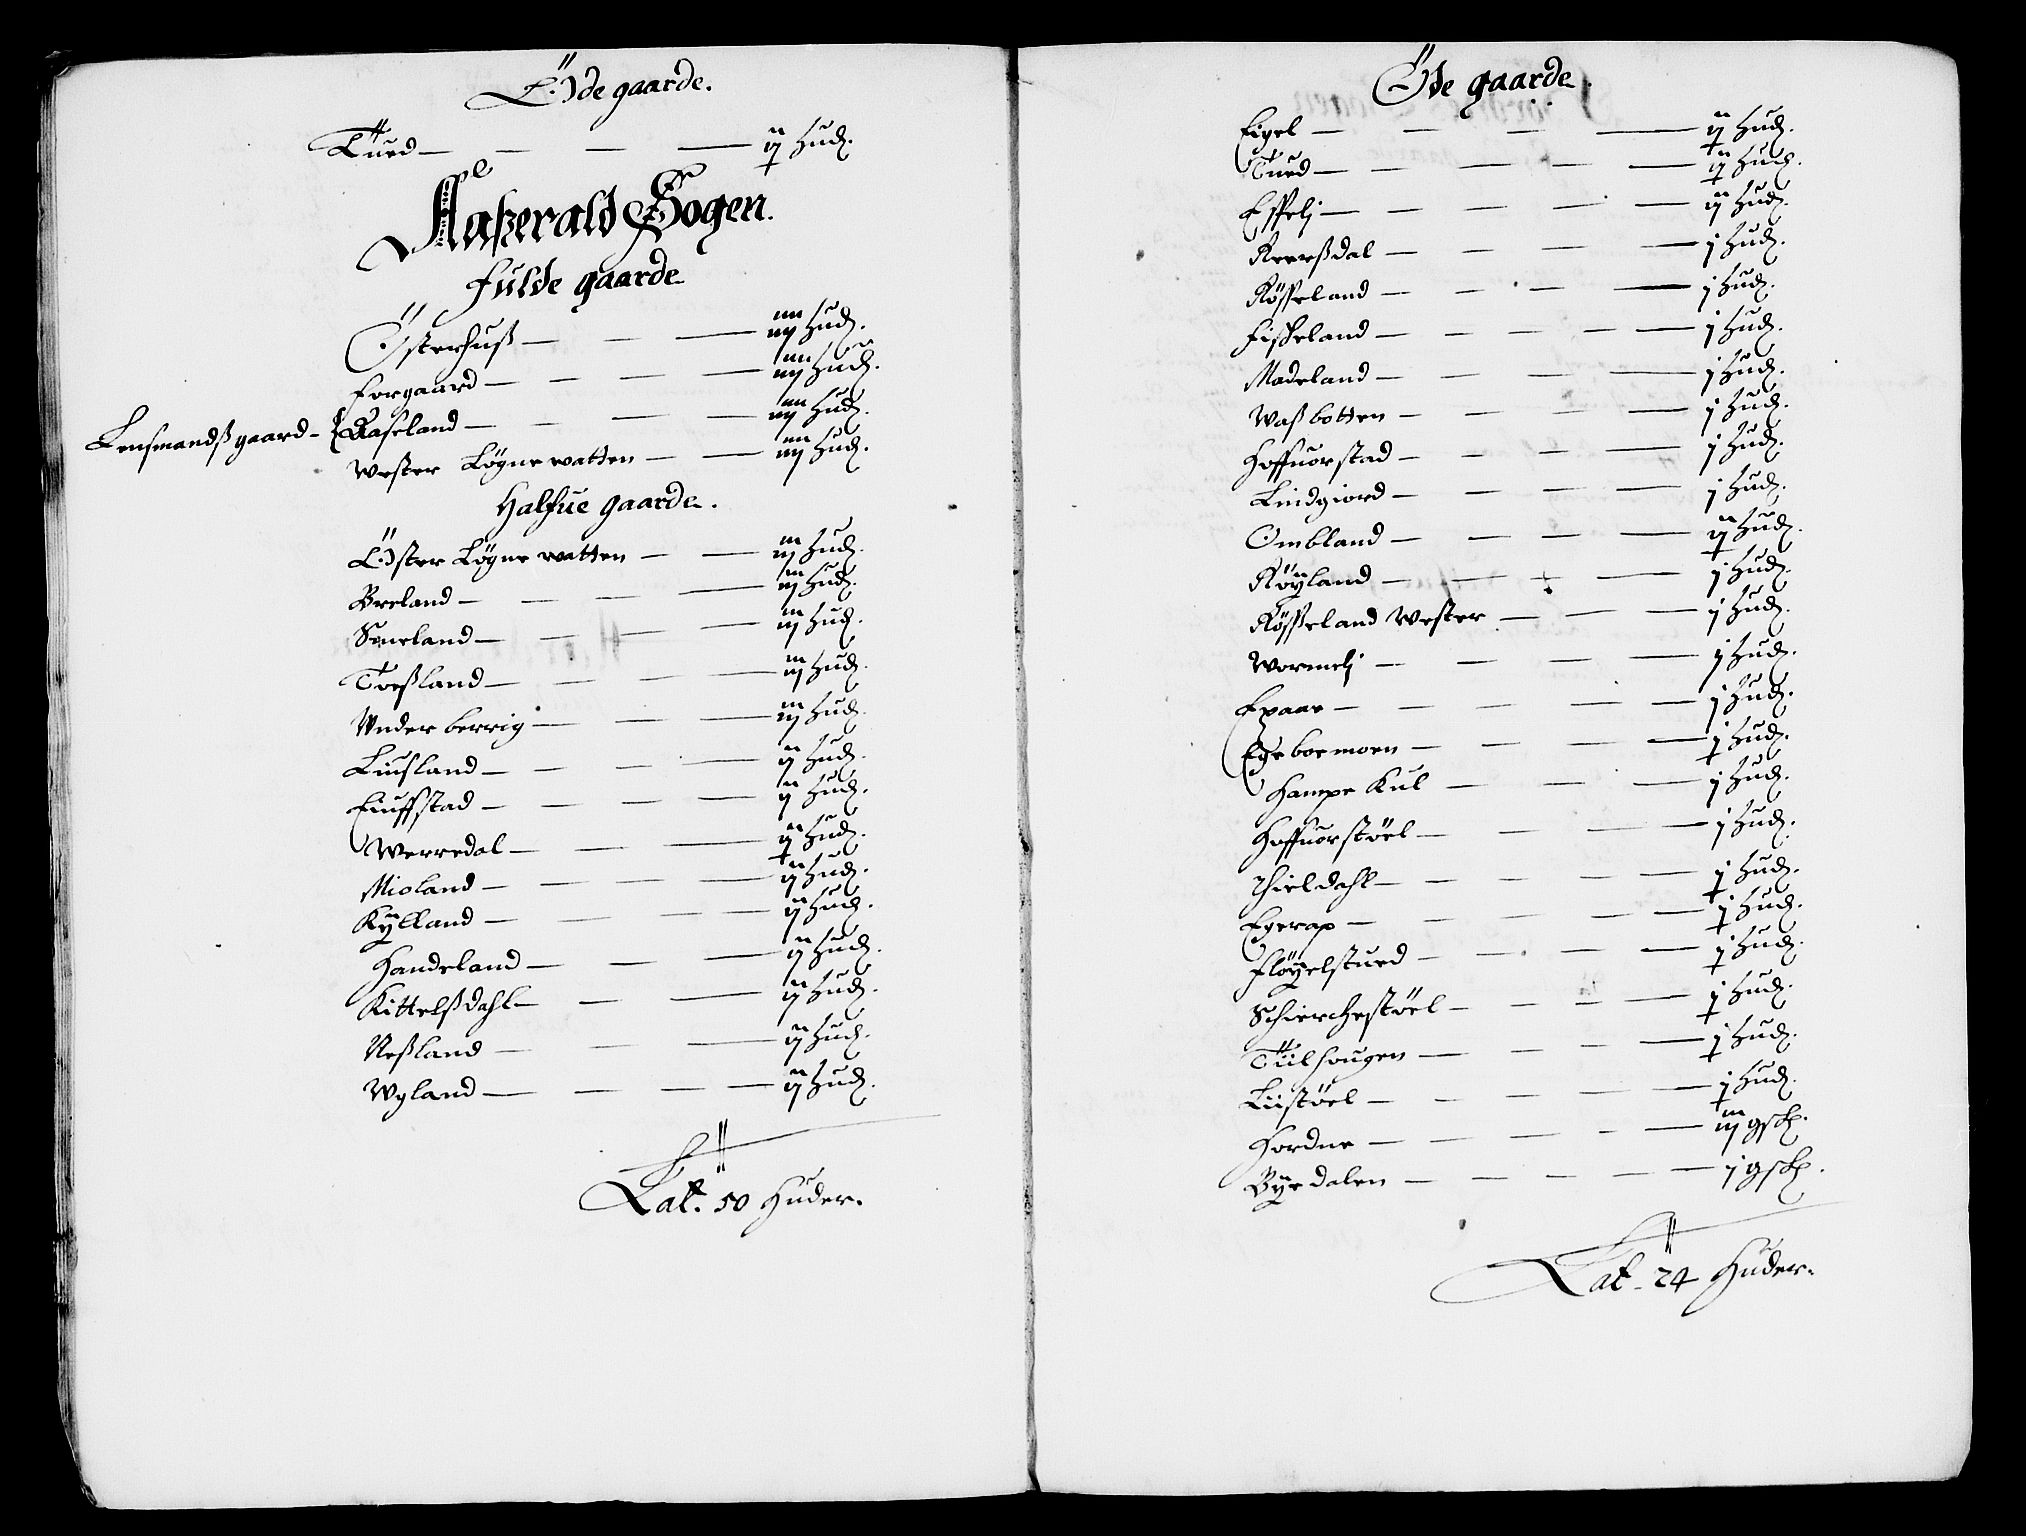 Öde gaarde.
Tued — — — — ij Hud.
Aaßerald Sogen.
Fulde gaarde
Österhuß — — — iiij Hud.
Forgaard — — — — iiij Hud.
Lensmandß gaard - { Aaseland — — — — iiij Hud.
Wester Lögne watten — — iiij Hud.
Halfue gaarde.
Öster Lögne watten — — iij Hud.
Breland — — — — iij Hud.
Sueland — — — — iij Hud.
Toeßland — — — — iij Hud.
Wnder berrig — — — iij Hud.
Liusland — — — — ij Hud.
Eiuffstad — — — — ij Hud.
Werredal — — — ij Hud.
Mioland — — — — ij Hud.
Kylland — — — — ij Hud.
Handeland — — — ij Hud.
Kittelßdahl — — — ij Hud.
Neßland — — — — ij Hud.
Wgland — — — — ij Hud.
Lat. 50 Huder.
Öde gaarde.
Eigel — — — — ij Hud.
Tued — — — — ij Hud.
Espelj — — — — ij Hud.
Reerßdal — — — — j Hud.
Rösseland — — — — j Hud.
Fiskeland — — — — j Hud.
Madeland — — — — j Hud.
Waßbotten — — — — j Hud.
Hoffuorstad — — — — j Hud.
Lindgiord — — — — j Hud.
Ombland — — — — ij Hud.
Röyland — — — — j Hud.
Rösseland Wester — — — j Hud.
Wormelj — — — — j Hud.
Epaae — — — — j Hud.
Egeboemoen — — — — j Hud.
Hampe Kul — — — j Hud.
Hoffuorstöel — — — j Hud.
Thieldahl — — — — j Hud.
Egerap — — — — j Hud.
Flöyelstued — — — — j Hud.
Schierchestöel — — — — j Hud.
Tiilhougen — — — — j Hud.
Liistöel — — — — j Hud.
Hordne — — — — iij gsk.
Byedalen — — — — j gsk.
Lat. 24 Huder.